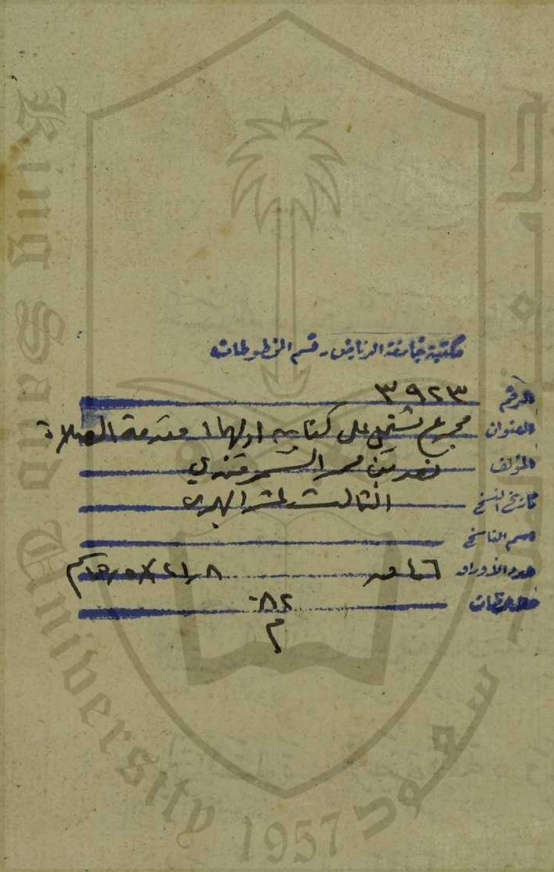 مكتبة جامعة الرياض - قسم المخطوطات
الرقم ٣٩٢٣
العنوان مجموع يشتمل على كتابين اولهما مقدمة الصلاة
المؤلف نصر بن محمد السمرقندي
تاريخ النسخ الثالث عشر الهجري
اسم الناسخ
عدد الأوراق
ملاحظات
م
King Saud University 1957
جامعة الملك سعود